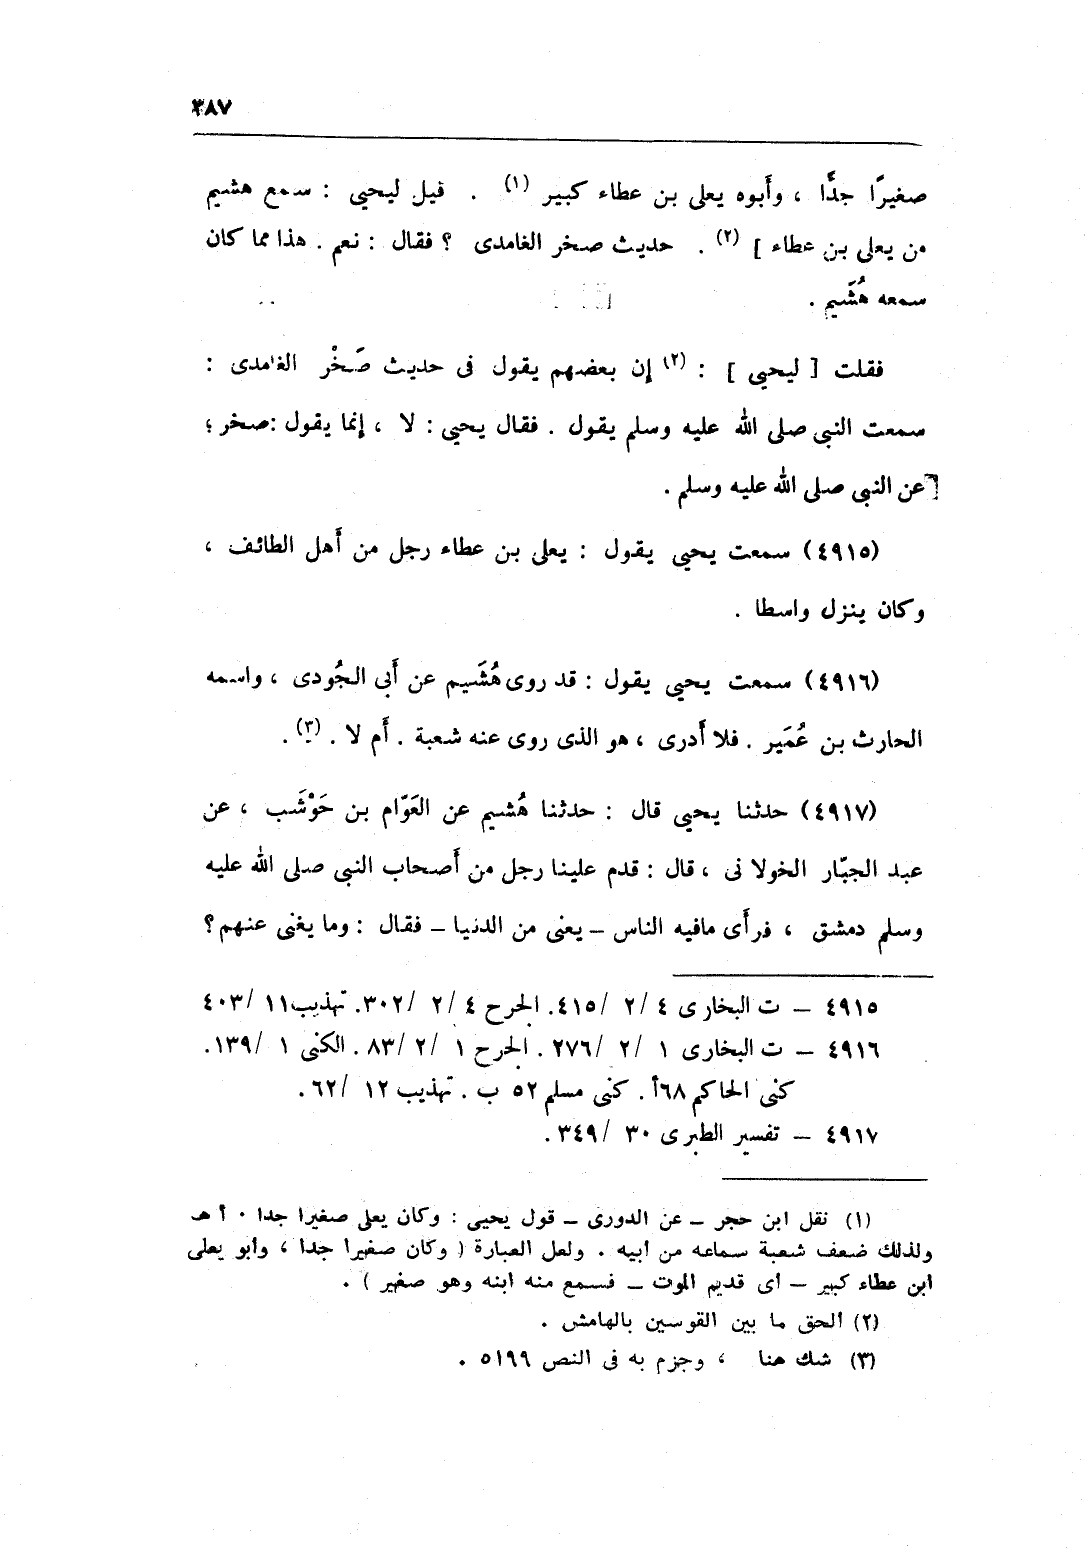 ٣٨٧
صغيرًا جدًّا ، وأَبوه يعلى بن عطاء كبير (١) . قيل ليحيى : سمع هشيم
من يعلى بن عطاء ] (٢) . حديث صخر الغامدى ؟ فقال : نعم . هذا مما كان
سمعه هُشَيم .
فقلت [ ليحيى ] : (٢) إن بعضهم يقول فى حديث صَخْر الغامدى :
سمعت النبى صلى الله عليه وسلم يقول . فقال يحيى : لا ، إنما يقول :صخر ؛
[عن النبى صلى الله عليه وسلم .
(٤٩١٥) سمعت يحيى يقول : يعلى بن عطاء رجل من أَهل الطائف ،
وكان ينزل واسطا .
(٤٩١٦) سمعت يحيى يقول : قد روى هُشَيم عن أَبى الجُودى ، واسمه
الحارث بن عُمَير . فلا أَدرى ، هو الذى روى عنه شعبة . أَم لا . (٣) .
(٤٩١٧) حدثنا يحيى قال : حدثنا هُشيم عن العَوّام بن حَوْشَب ، عن
عبد الجبّار الخولا نى ، قال : قدم علينا رجل من أَصحاب النبى صلى الله عليه
وسلم دمشق ، فرأَى مافيه الناس – يعنى من الدنيا – فقال : وما يغنى عنهم ؟
٤٩١٥ – ت البخارى ٤ /٢ /٤١٥. الجرح ٤ /٢ /٣٠٢. تهذيب١١ /٤٠٣
٤٩١٦ – ت البخارى ١ /٢ /٢٧٦ . الجرح ١ /٢ /٨٣ . الكنى ١ /١٣٩.
كنى الحاكم ٦٨أ . كنى مسلم ٥٢ ب . تهذيب ١٢ /٦٢ .
٤٩١٧ – تفسير الطبرى ٣٠ /٣٤٩ .
(١) نقل ابن حجر – عن الدورى – قول يحيى : وكان يعلى صغيرا جدا . أ هـ
ولذلك ضعف شعبة سماعه من أبيه . ولعل العبارة ( وكان صغيرا جدا ، وأبو يعلى
ابن عطاء كبير – أى قديم الموت – فسمع منه ابنه وهو صغير ) .
(٢) ألحق ما بين القوسين بالهامش .
(٣) شك هنا ، وجزم به فى النص ٥١٩٩ .